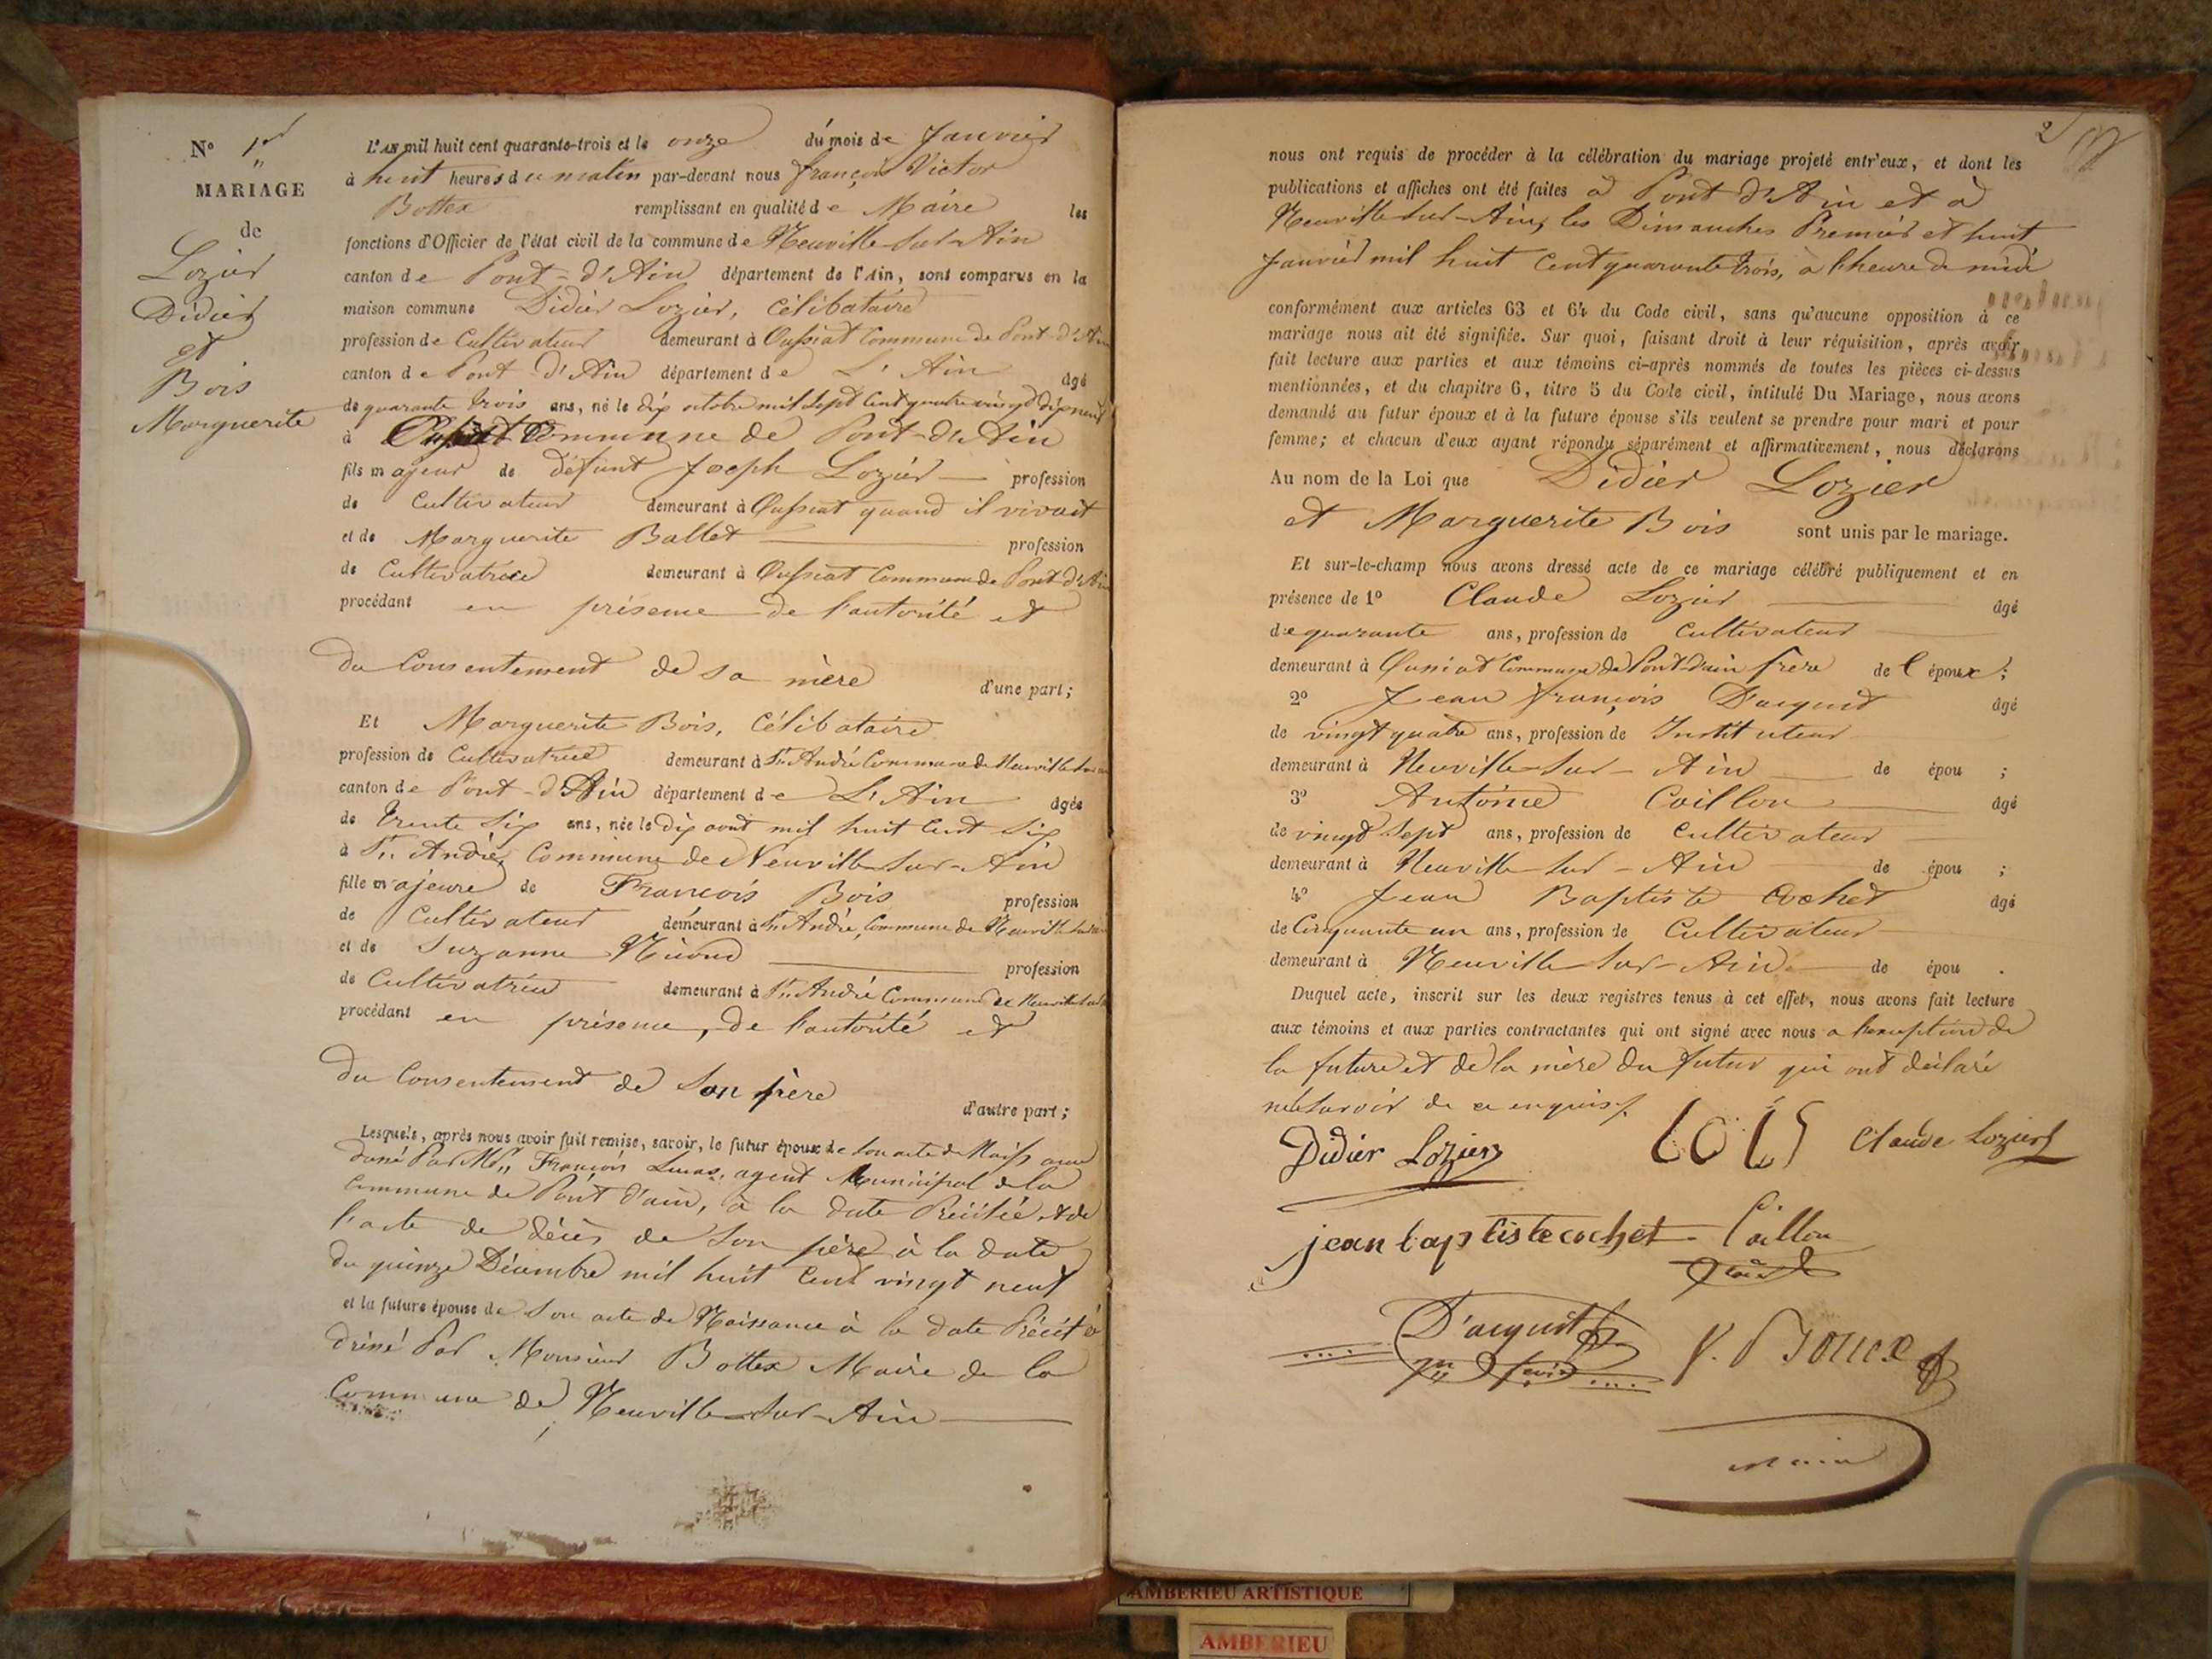 N° 1er
MARIAGE
de
Lozier
Didier
et
Bois
Marguerite
L'AN mil huit cent quarante-trois et le onze du mois de Janvier
à huit heures du matin par-devant nous françois Victor
Bottex remplissant en qualité de Maire les
fonctions d'Officier de l'état civil de la commune de Neuville sur Ain
canton de Pont-d'Ain département de l'Ain, sont comparus en la
maison commune Didier Lozier, Célibataire
profession de Cultivateur demeurant à Oussiat Commune de Pont-d'Ain
canton de Pont-d'Ain département de L'Ain âgé
de quarante trois ans, né le dix octobre mil sept Cent quatre vingt dix neuf
à Oussiat Commune de Pont-d'Ain
fils majeur de défunt Joseph Lozier profession
de Cultivateur demeurant à Oussiat quand il vivait
et de Marguerite Ballet profession
de Cultivatrice demeurant à Oussiat Commune de Pont-d'Ain
procédant en présence de l'autorité et
du Consentement de sa mère d'une part;
Et Marguerite Bois, Célibataire
profession de Cultivatrice demeurant à St. André Commune de Neuville sur ain
canton de Pont-d'Ain département de L'Ain âgée
de trente six ans, née le dix aout mil huit Cent six
à St. André, Commune de Neuville-sur-Ain
fille majeure de François Bois profession
de Cultivateur demeurant à St. André, Commune de Neuville sur ain
et de Suzanne profession
de Cultivatrice demeurant à St. André Commune de Neuville sur
procédant en présence, de l'autorité et
du Consentement de son père d'autre part;
Lesquels, après nous avoir fait remise, savoir, le futur époux de son acte de Naissance
François Lucas, agent Municipal de la
Commune de Pont d'ain, à la date Précitée et de
l'acte de décès de son père à la date
du quinze Décembre mil huit Cent vingt neuf
et la future épouse de son acte de Naissance à la date Précitée
Par Monsieur Bottex Maire de la
Commune de Neuville-sur-Ain
2
nous ont requis de procéder à la célébration du mariage projeté entr'eux, et dont les
publications et affiches ont été faites à Pont d'Ain et à
Neuville sur-Ain, les Dimanches Premier et huit
Janvier mil huit Cent quarante trois, à l'heure de midi
conformément aux articles 63 et 64 du Code civil, sans qu'aucune opposition à ce
mariage nous ait été signifiée. Sur quoi, faisant droit à leur réquisition, après avoir
fait lecture aux parties et aux témoins ci-après nommés de toutes les pièces ci-dessus
mentionnées, et du chapitre 6, titre 5 du Code civil, intitulé Du Mariage, nous avons
demandé au futur époux et à la future épouse s'ils veulent se prendre pour mari et pour
femme; et chacun d'eux ayant répondu séparément et affirmativement, nous déclarons
Au nom de la Loi que Didier Lozier
et Marguerite Bois sont unis par le mariage.
Et sur-le-champ nous avons dressé acte de ce mariage célébré publiquement et en
présence de 1° Claude Lozier âgé
de quarante ans, profession de Cultivateur
demeurant à Oussiat Commune de Pont d'ain frère de l'époux;
2° Jean François Dacquit âgé
de vingt quatre ans, profession de Instituteur
demeurant à Neuville-sur-Ain de épou ;
3° Antoine Caillon âgé
de vingt sept ans, profession de Cultivateur
demeurant à Neuville-sur-Ain de épou ;
4° Jean Baptiste Cochet âgé
de Cinquante un ans, profession de Cultivateur
demeurant à Neuville-sur-Ain de épou .
Duquel acte, inscrit sur les deux registres tenus à cet effet, nous avons fait lecture
aux témoins et aux parties contractantes qui ont signé avec nous a l'exception de
la future et de la mère du futur qui ont déclaré
ne savoir de ce enquis
Didier Lozier Claude Lozier
jean baptiste cochet Caillon
D'acquit
AMBERIEU ARTISTIQUE
AMBERIEU